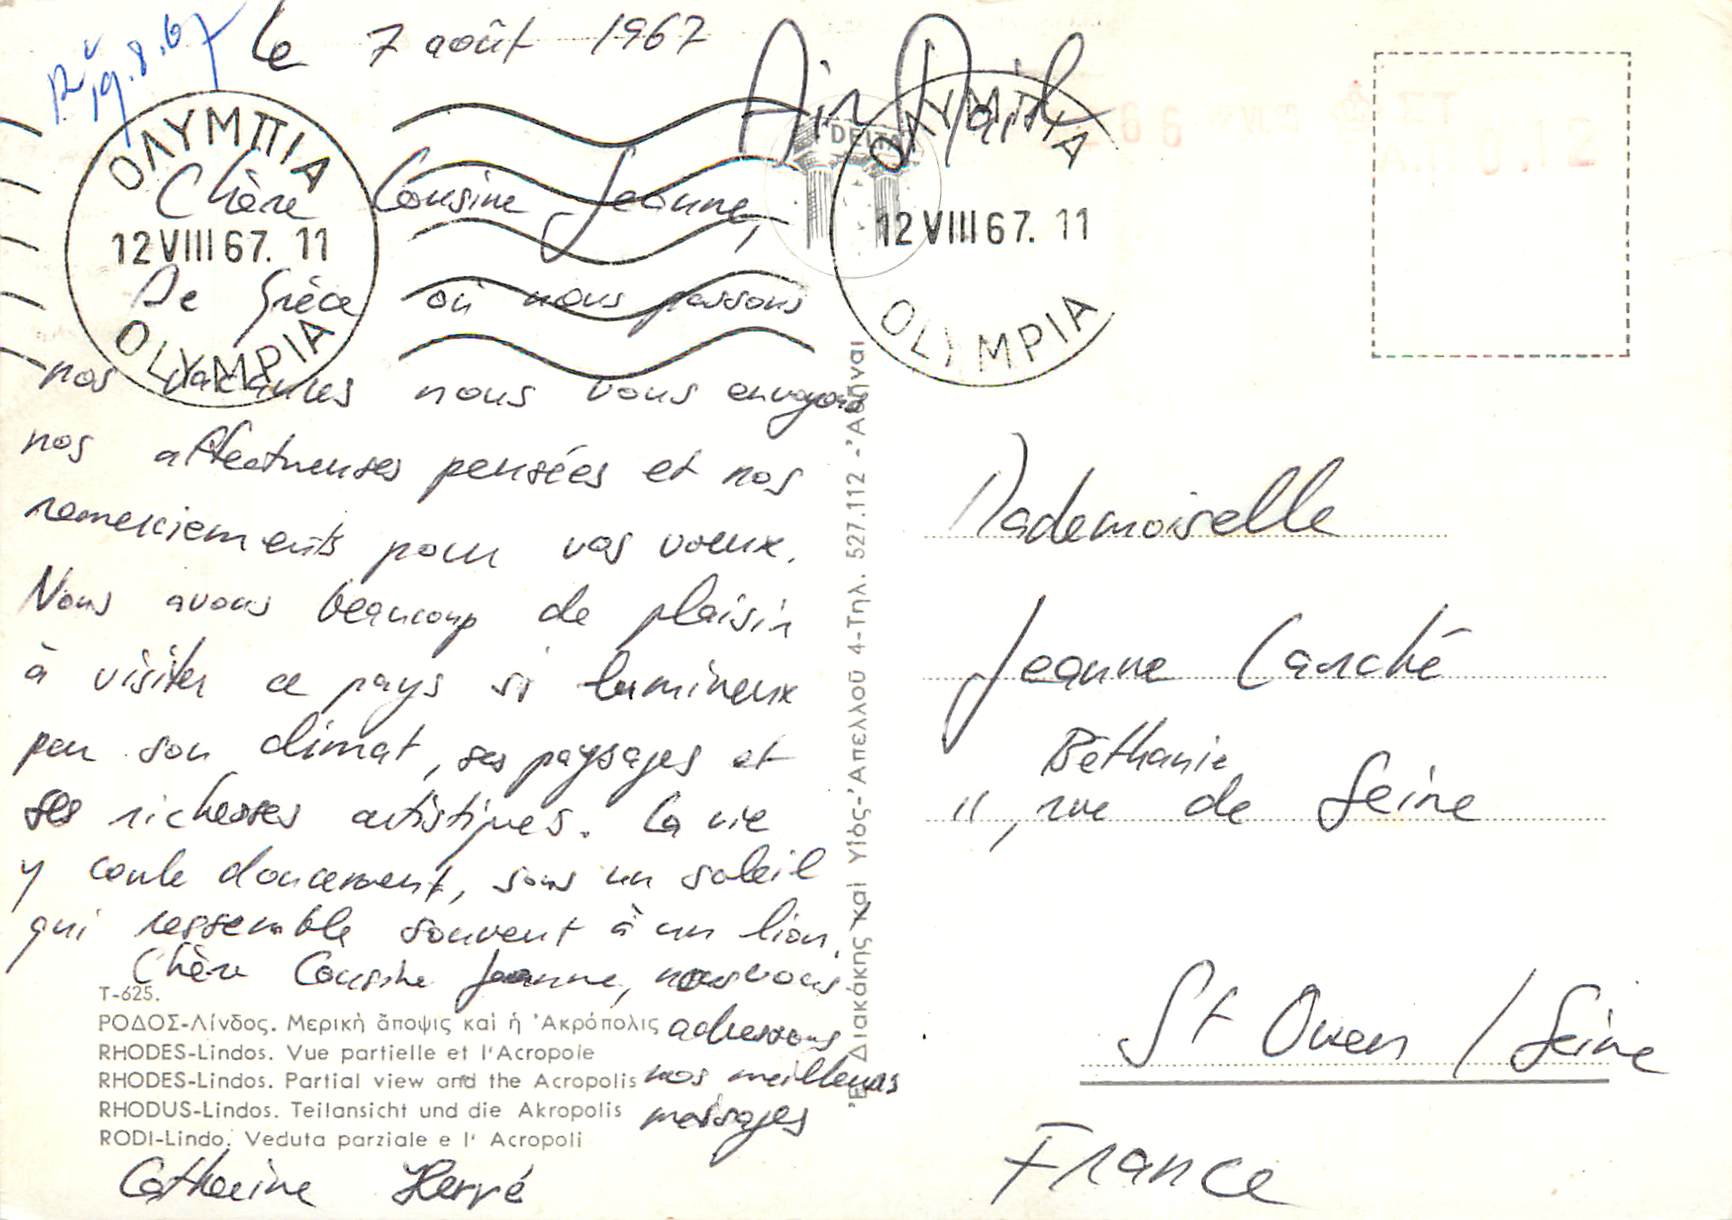 Rû 19.8.67
le 7 août 1967
Air Mail
ΟΛΥΜΠΙΑ
12 VIII 67. 11
OLYMPIA
DELTA
ΟΛΥΜΠΙΑ
12 VIII 67. 11
OLYMPIA
Chère Cousine Jeanne,
De Grèce où nous passons
nos vacances nous vous envoyons
nos affectueuses pensées et nos
remerciements pour vos voeux.
Nous avons beaucoup de plaisir
à visiter ce pays si lumineux
par son climat, ses paysages et
ses richesses artistiques. La vie
y coule doucement, sous un soleil
qui ressemble souvent à un lion.
Chère Cousine Jeanne, nous vous
adressons
nos meilleurs
messages
Catherine Hervé
T-625.
ΡΟΔΟΣ-Λίνδος. Μερική ἄποψις καί ἡ Ἀκρόπολις
RHODES-Lindos. Vue partielle et l'Acropole
RHODES-Lindos. Partial view and the Acropolis
RHODUS-Lindos. Teilansicht und die Akropolis
RODI-Lindo. Veduta parziale e l' Acropoli
Διακάκης καί Υἱός-Ἀπελλοῦ 4-Τηλ. 527.112 -Ἀθῆναι
Mademoiselle
Jeanne Carché
Béthanie
11, rue de Seine
St Ouen / Seine
France